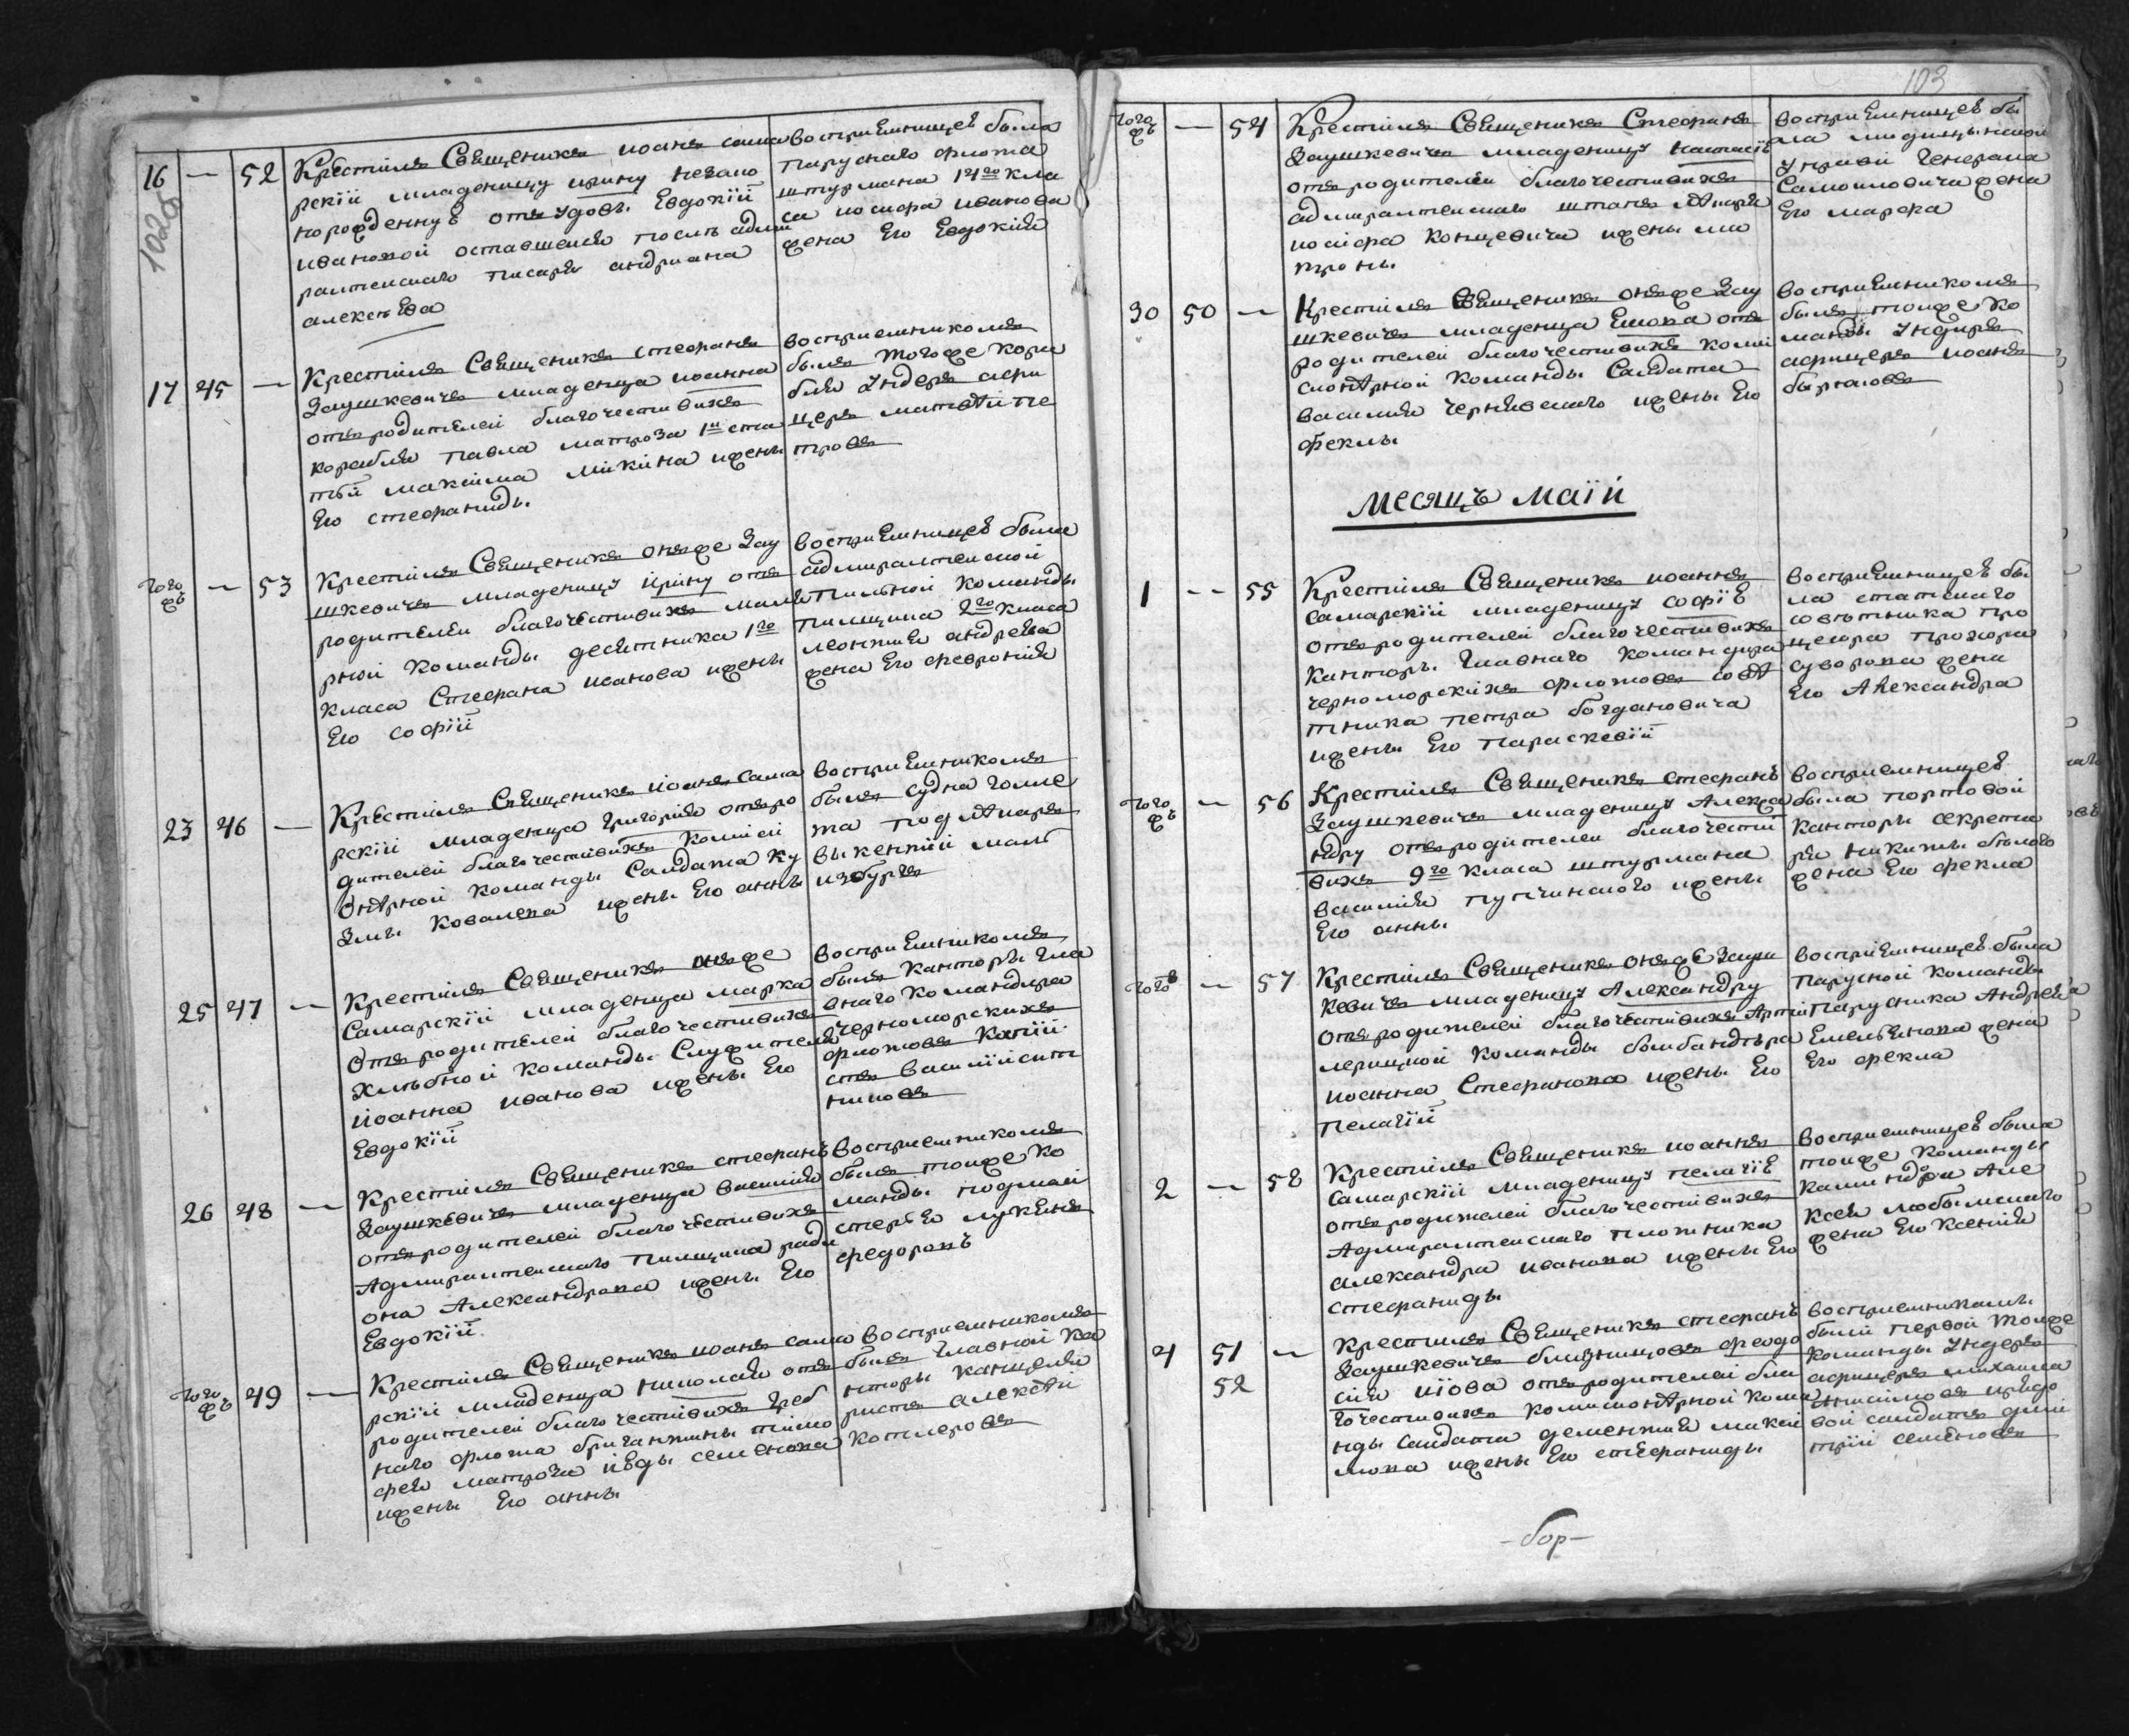 102об
16 — 52 Крестилъ Священикъ иоанъ сама
рскїй младеницу ирину незано
норожденную отъ удовы Евдокїи
ивановой оставшейся послѣ адми
ралтейскаго писаря андриана
алексѣева
восприемницею была
паруснаго флота
штурмана 14го кла
са иосифа иванова
жена Его Евдокия
17 45 — Крестилъ Священикъ стефанъ
Заушкевичъ младенца иоанна
отъ родителей благочестивихъ
корабля павла матроза 1й ста
тьи максима микина и жены
Его стефаниды
восприемникомъ
былъ тогоже кора
бля ундеръ афи
церъ матвѣй пе
тровъ
того жъ — 53 Крестилъ Священикъ онъже Зау
шкевичъ младеницу ирину отъ
родителей благочестивихъ маля
рной команды десятника 1го
класа Стефана иванова и жены
Его софїи
восприемницею была
адмиралтейской
пильной команды
пилщика 2го класа
леонтия андреева
жена Его феврония
23 46 — Крестилъ Священикъ иоанъ сама
рскїй младенца григория отъ ро
дителей благочестивихъ комиси
онѣрной команды Салдата ку
змы ковалева и жены Его анны
восприемникомъ
былъ судна
подлѣкаръ
викентий
25 47 — Крестилъ Священикъ онъже
Самарскїй младенца марка
отъ родителей благочестивихъ
хлѣбной команды Служителя
иоанна иванова и жены Его
Евдокїи
восприемникомъ
былъ канторы гла
внаго командира
черноморскихъ
флотовъ капїи
стъ василий сит
никовъ
26 48 — Крестилъ Священикъ стефанъ
Заушкевичъ младенца василия
отъ родителей благочестивихъ
Адмиралтейскаго пилщика роди
она Александрова и жены Его
Евдокїи
восприемникомъ
былъ тойже ко
манды подмай
стерье лукьянъ
федоровъ
того жъ 49 — Крестилъ Священикъ иоанъ сама
рскїй младенца николая отъ
родителей благочестивихъ греб
наго флота бригантины тимо
фей матроза иеды семенова
и жены Его анны
восприемникомъ
былъ главной ка
нторы канцеля
ристъ алексѣй
котлеровъ
103
того жъ — 54 Крестилъ Священикъ Стефанъ
Заушкевичъ младеницу настасїю
отъ родителей благочестивихъ
адмиралтейскаго штапъ лѣкаря
иосифа концевича и жены ма
троны
восприемницею бы
ла медицынской
управи генерала
Самоиловича жена
Его марфа
30 50 — Крестилъ Священикъ онъже Зау
шкевичъ младенца Емона отъ
родителей благочестивихъ коми
сионѣрной команды Салдата
василия чернявского и жены Его
феклы
восприемникомъ
былъ тойже ко
манды ундиръ
афицеръ иоанъ
бырковъ
месяцъ маїй
1 — 55 Крестилъ Священикъ иоаннъ
самарскїй младеницу софїю
отъ родителей благочестивихъ
канторы главнаго командира
черноморскихъ флотовъ совѣ
тника петра богдановича
и жены Его параскевїи
восприемницею бы
ла статскаго
совѣтника про
цеора прохора
суворова жена
Его Александра
того жъ — 56 Крестилъ Священикъ стефанъ
Заушкевичъ младеницу Алекса
ндру отъ родителей благочести
вихъ 9го класа штурмана
василия путчинского и жены
Его анны
восприемницею
была портовой
канторы секрета
ря никиты бѣлого
жена Его фекла
того жъ — 57 Крестилъ Священикъ онъже Зауш
кевичъ младеницу Александру
отъ родителей благочестивихъ Арти
лерицкой команды бомбандѣра
иоанна Стефанова и жены Его
пелагїи
восприемницею была
парусной команды
парусника Андрея
Емельянова жена
Его фекла
2 — 58 Крестилъ Священикъ иоаннъ
Самарскїй младеницу пелагїю
отъ родителей благочестивихъ
Адмиралтейскаго плотника
александра иванова и жены Его
стефаниды
восприемницею была
тойже команды
камандора Але
ксея любимскаго
жена Его Ксения
4 51 52 — Крестилъ Священикъ стефанъ
Заушкевичъ близнецовъ феодо
сия иїова отъ родителей бла
гочестивихъ комисионѣрной кома
нды салдата дементия макси
мова и жены Его стефаниды
восприемникамы
были первой тойже
команды ундеръ
афицеръ михаила
анисимовъ
вой салдатъ дми
трїй семеновъ